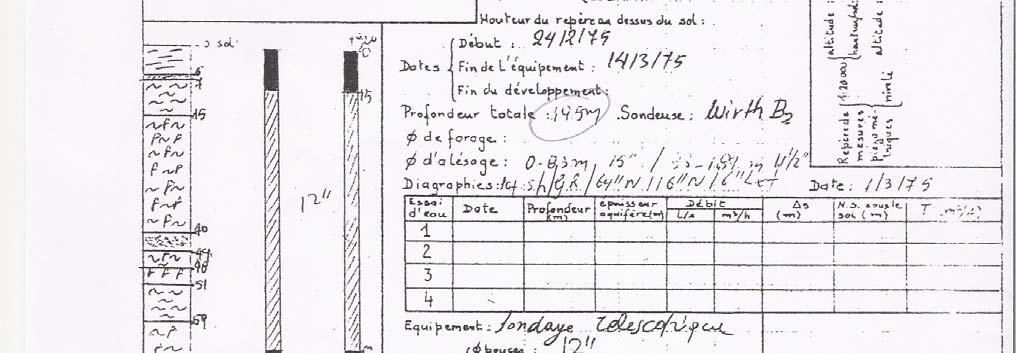 Hauteur du repère au dessus du sol :
Début : 24/2/75
Dates
Fin de l'équipement : 14/3/75
Fin du développement :
Profondeur totale : 195m Sondeuse : Wirth B3
Ø de forage :
Ø d'alésage : 0-83m / 15" /
Diagraphies : / G.R / 64"N / 16"N / 6" Date : 1/3/75
Essai d'eau Date Profondeur (m) épaisseur aquifère (m) Débit L/s m³/h Δs (m) N.S. sous le sol (m) T
1
2
3
4
Equipement : Sondage télescopique
12"
0 sol
6
7
15
40
44
51
59
0
15
12"
Repère de mesures piézométriques
1:20000
nivelé
altitude :
altitude :